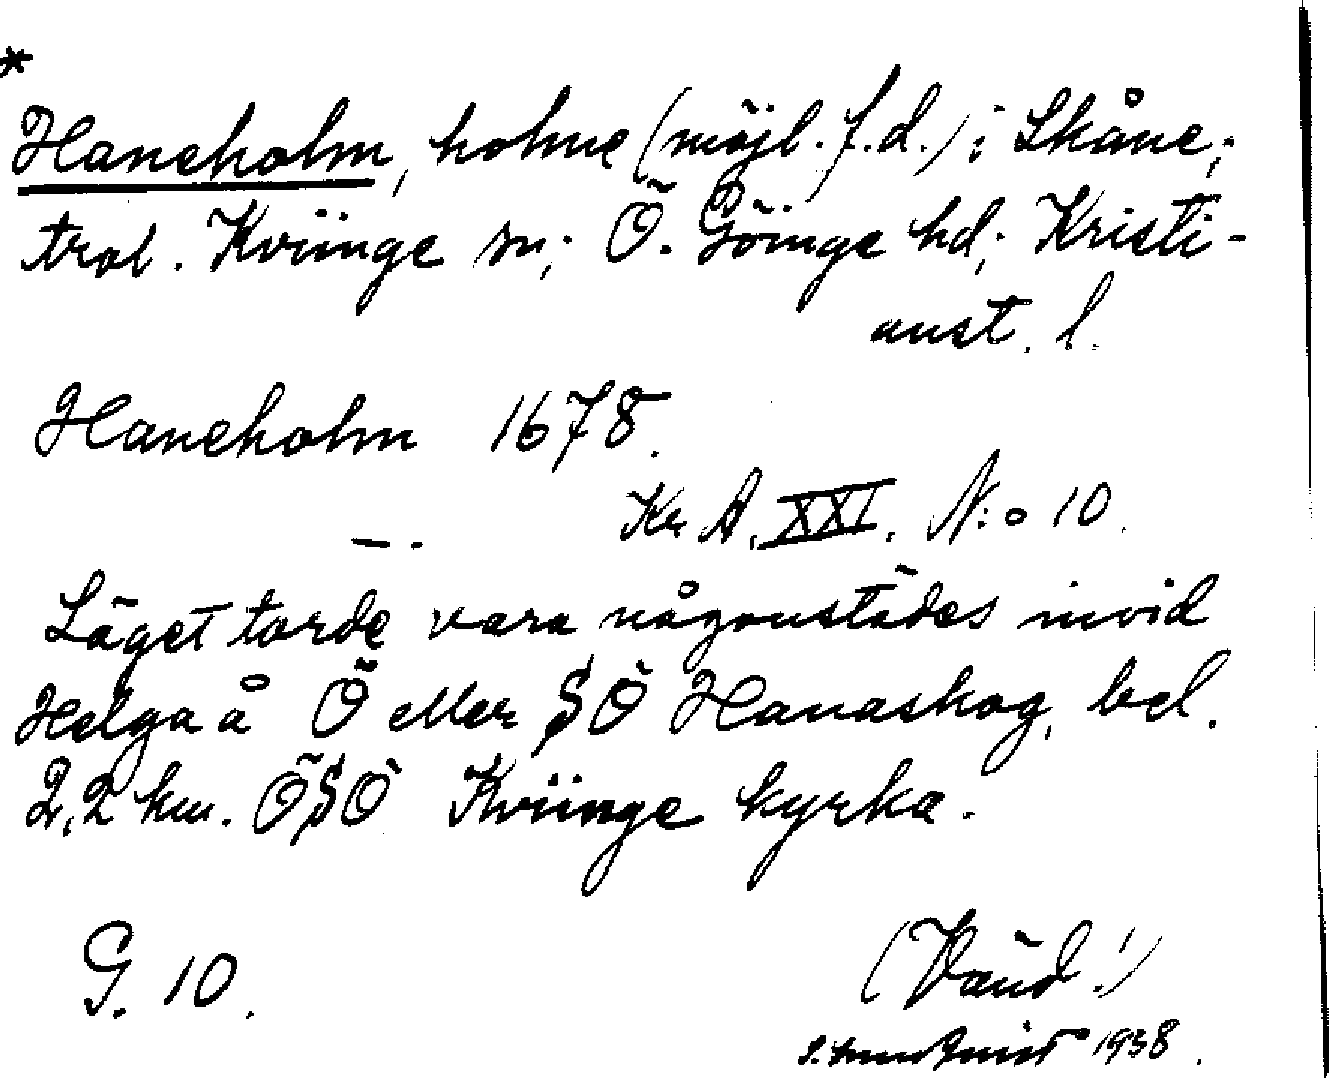 *
Haneholm, holme (möjl. f.d.) i Skåne;
trol. Kviinge sn; Ö. Göinge hd; Kristi-
anst. l.
Haneholm 1678.
Kr A. XXI. N:o 10.
— .
Läget torde vara någonstädes invid
Helga å Ö eller SÖ Hanaskog, bel.
2,2 km. ÖSÖ Kviinge kyrka.
G. 10.
(Vänd!)
1938.